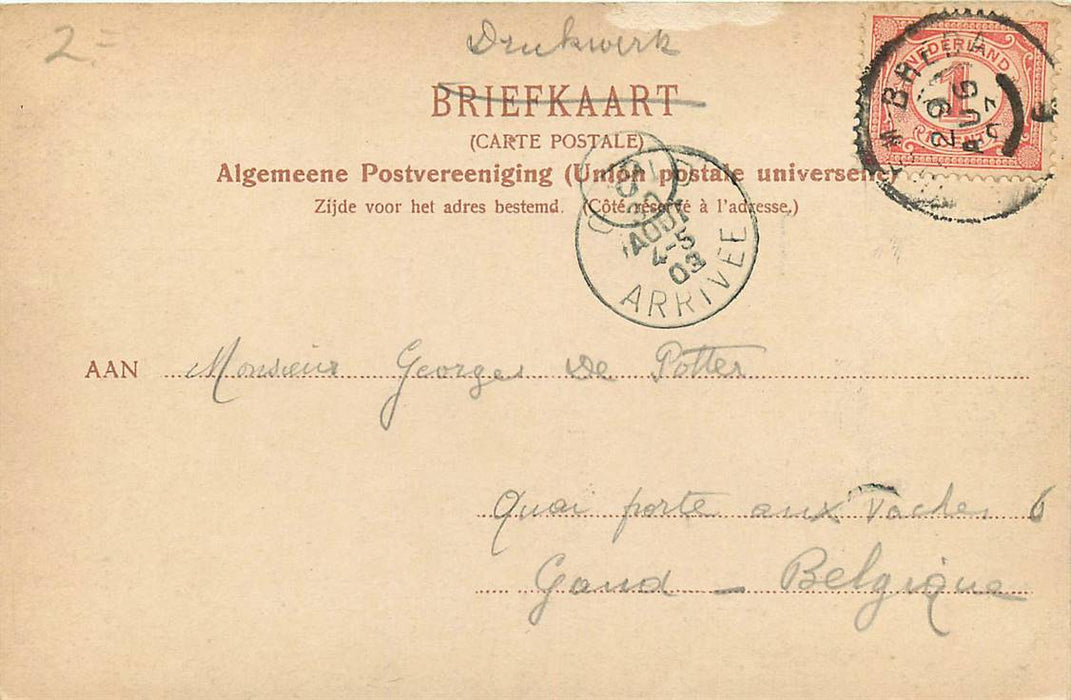 2=
Drukwerk
BRIEFKAART
(CARTE POSTALE)
Algemeene Postvereeniging (Union postale universelle)
Zijde voor het adres bestemd. (Côté réservé à l'adresse.)
NEDERLAND
1
CENT
BREDA
AUG
AOUT
4-5
03
ARRIVEE
AAN Monsieur Georges De Potter
Quai porte aux Vaches 6
Gand - Belgique